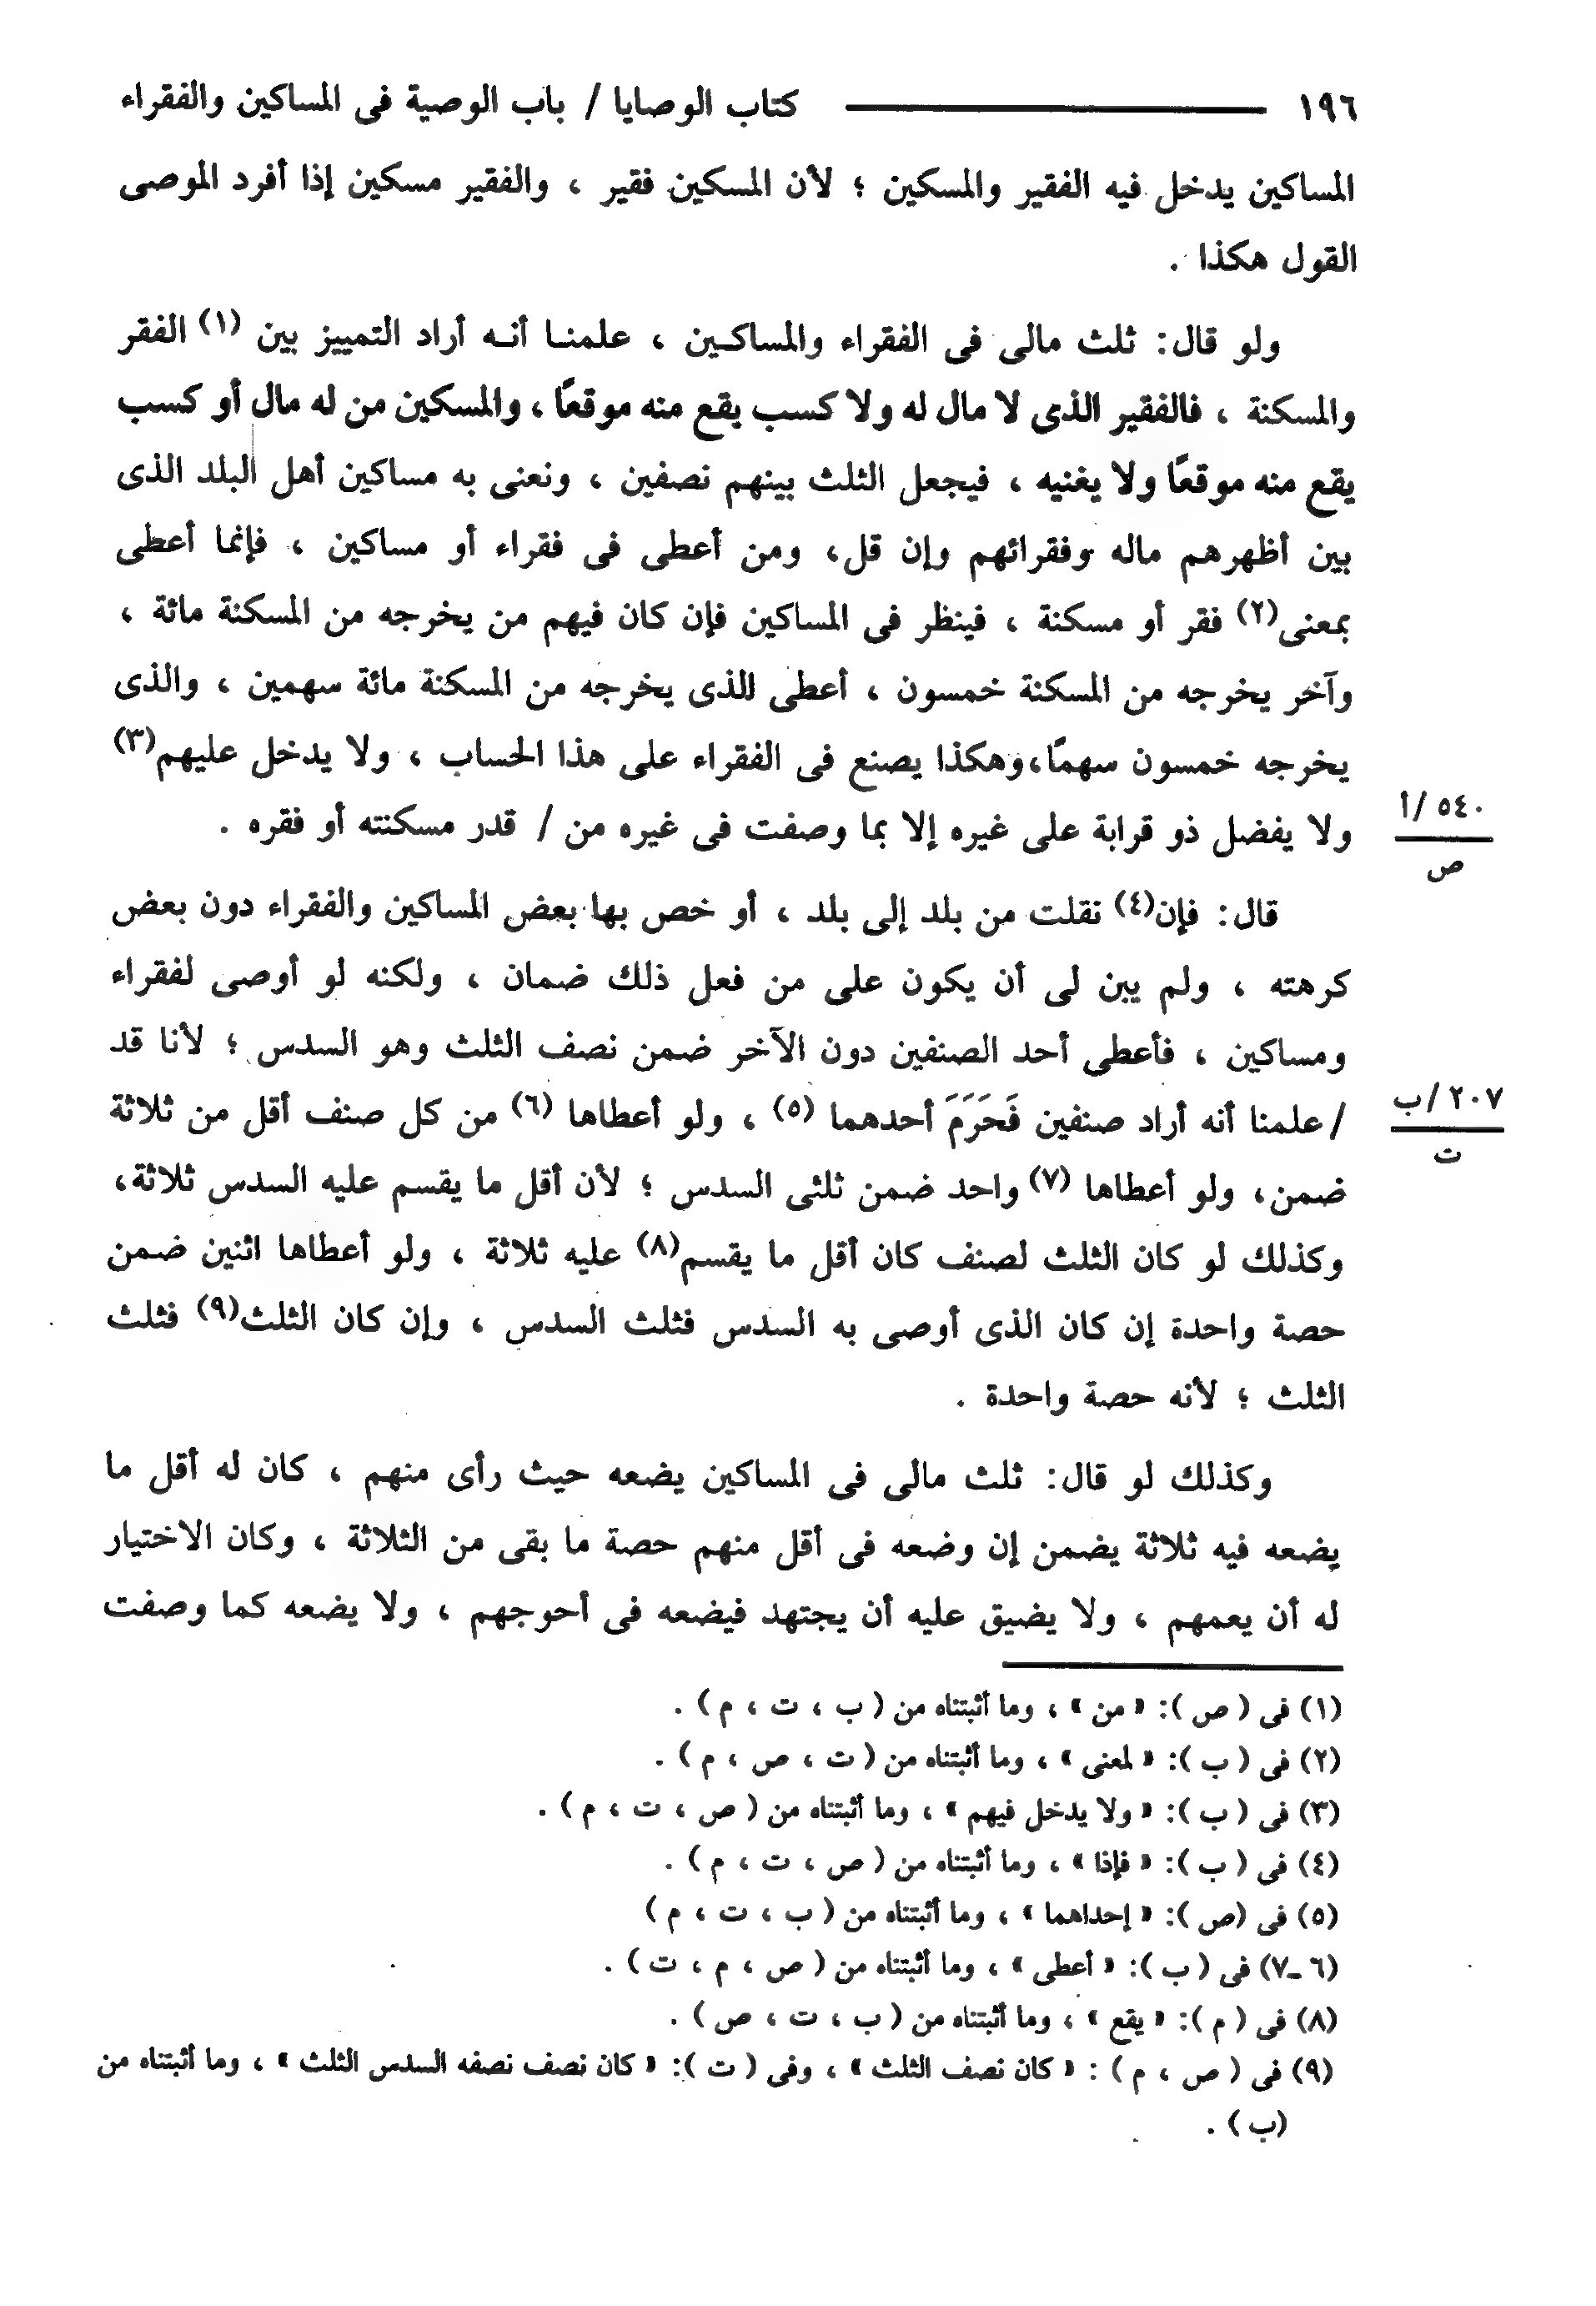 ١٩٦ كتاب الوصايا / باب الوصية فى المساكين والفقراء
المساكين يدخل فيه الفقير والمسكين ؛ لأن المسكين فقير ، والفقير مسكين إذا أفرد الموصى
القول هكذا .
ولو قال: ثلث مالى فى الفقراء والمساكـين ، علمنـا أنـه أراد التمييز بين (١) الفقر
والمسكنة ، فالفقير الذى لا مال له ولا كسب يقع منه موقعًا ، والمسكين من له مال أو كسب
يقع منه موقعًا ولا يغنيه ، فيجعل الثلث بينهم نصفين ، ونعنى به مساكين أهل البلد الذى
بين أظهرهم ماله وفقرائهم وإن قل، ومن أعطى فى فقراء أو مساكين ، فإنما أعطى
بمعنى(٢) فقر أو مسكنة ، فينظر فى المساكين فإن كان فيهم من يخرجه من المسكنة مائة ،
وآخر يخرجه من المسكنة خمسون ، أعطى الذى يخرجه من المسكنة مائة سهمين ، والذى
يخرجه خمسون سهمًا،وهكذا يصنع فى الفقراء على هذا الحساب ، ولا يدخل عليهم(٣)
ولا يفضل ذو قرابة على غيره إلا بما وصفت فى غيره من / قدر مسكنته أو فقره .
٥٤٠ /أ
ص
قال: فإن(٤) نقلت من بلد إلى بلد ، أو خص بها بعض المساكين والفقراء دون بعض
كرهته ، ولم يبن لى أن يكون على من فعل ذلك ضمان ، ولكنه لو أوصى لفقراء
ومساكين ، فأعطى أحد الصنفين دون الآخر ضمن نصف الثلث وهو السدس ؛ لأنا قد
/ علمنا أنه أراد صنفين فَحَرَمَ أحدهما (٥) ، ولو أعطاها (٦) من كل صنف أقل من ثلاثة
٢٠٧ /ب
ت
ضمن، ولو أعطاها (٧) واحد ضمن ثلثى السدس ؛ لأن أقل ما يقسم عليه السدس ثلاثة،
وكذلك لو كان الثلث لصنف كان أقل ما يقسم(٨) عليه ثلاثة ، ولو أعطاها اثنين ضمن
حصة واحدة إن كان الذى أوصى به السدس فثلث السدس ، وإن كان الثلث(٩) فثلث
الثلث ؛ لأنه حصة واحدة .
وكذلك لو قال: ثلث مالى فى المساكين يضعه حيث رأى منهم ، كان له أقل ما
يضعه فيه ثلاثة يضمن إن وضعه فى أقل منهم حصة ما بقى من الثلاثة ، وكان الاختيار
له أن يعمهم ، ولا يضيق عليه أن يجتهد فيضعه فى أحوجهم ، ولا يضعه كما وصفت
(١) فى ( ص ): « من » ، وما أثبتناه من ( ب ، ت ، م ) .
(٢) فى ( ب ): « لمعنى » ، وما أثبتناه من ( ت ، ص ، م ) .
(٣) فى ( ب ): « ولا يدخل فيهم » ، وما أثبتناه من ( ص ، ت ، م ) .
(٤) فى ( ب ): « فإذا » ، وما أثبتناه من ( ص ، ت ، م ) .
(٥) فى (ص ): « إحداهما » ، وما أثبتناه من ( ب ، ت ، م )
(٦ ـ٧) فى ( ب ): « أعطى » ، وما أثبتناه من ( ص ، م ، ت ) .
(٨) فى ( م ): « يقع » ، وما أثبتناه من ( ب ، ت ، ص ) .
(٩) فى ( ص ، م ) : « كان نصف الثلث » ، وفى ( ت ): « كان نصف نصفه السدس الثلث » ، وما أثبتناه من
(ب ) .